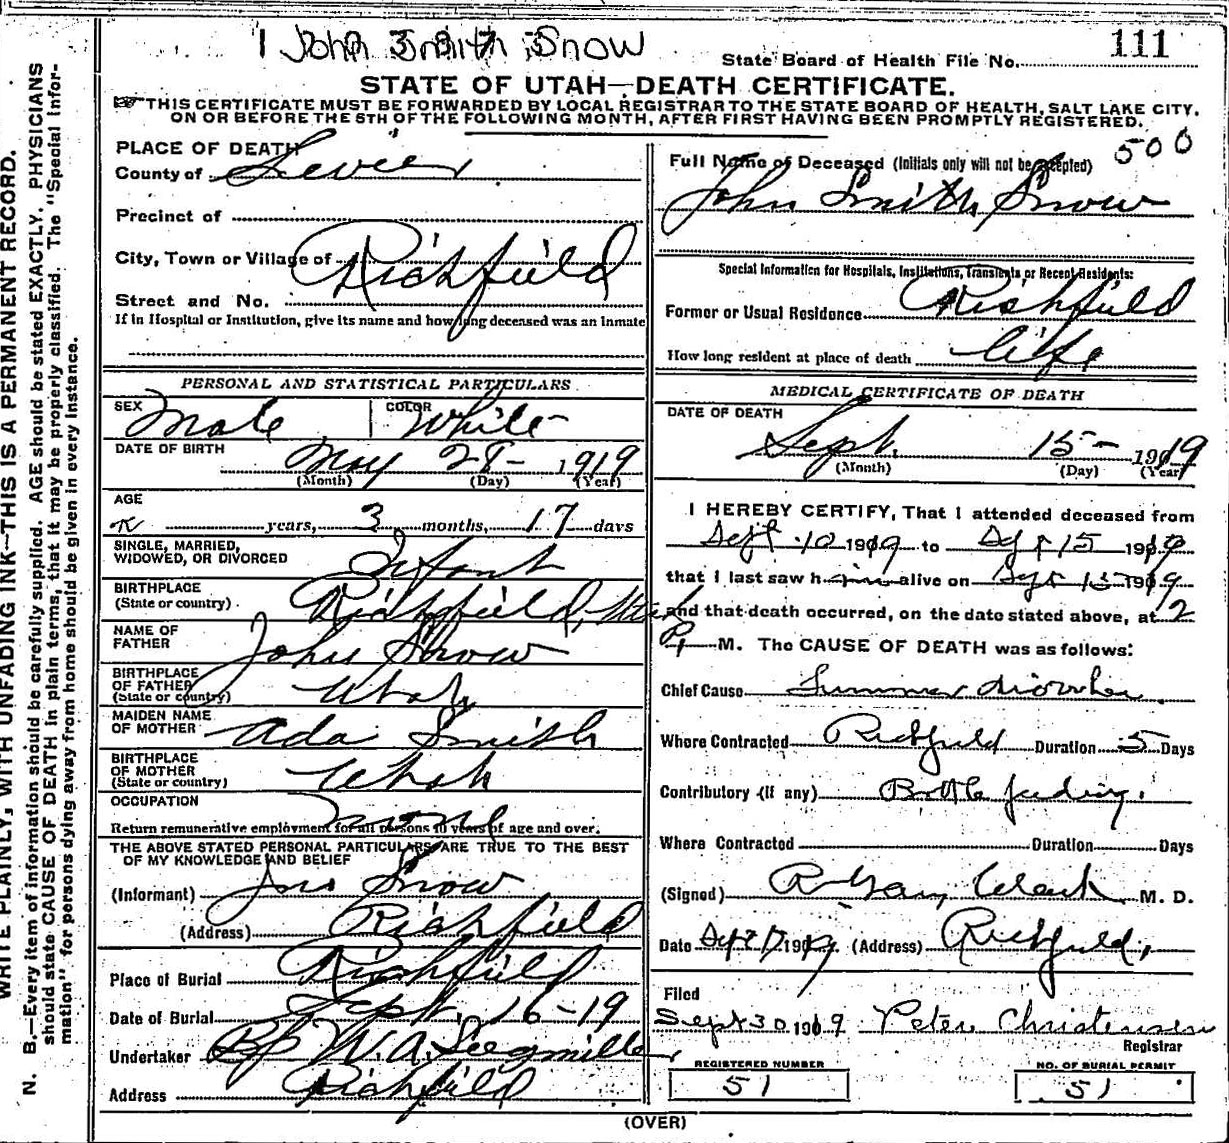 1 John Smith Snow
State Board of Health File No. 111
STATE OF UTAH—DEATH CERTIFICATE.
THIS CERTIFICATE MUST BE FORWARDED BY LOCAL REGISTRAR TO THE STATE BOARD OF HEALTH, SALT LAKE CITY,
ON OR BEFORE THE 5TH OF THE FOLLOWING MONTH, AFTER FIRST HAVING BEEN PROMPTLY REGISTERED.
WRITE PLAINLY, WITH UNFADING INK—THIS IS A PERMANENT RECORD.
N. B.—Every item of information should be carefully supplied. AGE should be stated EXACTLY. PHYSICIANS
should state CAUSE OF DEATH in plain terms, that it may be properly classified. The "Special Infor-
mation" for persons dying away from home should be given in every instance.
PLACE OF DEATH
County of Sevier
Precinct of
City, Town or Village of Richfield
Street and No.
If in Hospital or Institution, give its name and how long deceased was an inmate
PERSONAL AND STATISTICAL PARTICULARS
SEX Male COLOR White
DATE OF BIRTH
May 28- 1919
(Month) (Day) (Year)
AGE
years, 3 months, 17 days
SINGLE, MARRIED,
WIDOWED, OR DIVORCED Infant
BIRTHPLACE
(State or country) Richfield, Utah
NAME OF
FATHER John Snow
BIRTHPLACE
OF FATHER
(State or country) Utah
MAIDEN NAME
OF MOTHER Ada Smith
BIRTHPLACE
OF MOTHER
(State or country) Utah
OCCUPATION None
Return remunerative employment for all persons 10 years of age and over.
THE ABOVE STATED PERSONAL PARTICULARS ARE TRUE TO THE BEST
OF MY KNOWLEDGE AND BELIEF
(Informant) Jno Snow
(Address) Richfield
Place of Burial Richfield
Date of Burial Sept. 16-19
Undertaker Bp W. A. Seegmiller
Address Richfield
500
Full Name of Deceased (Initials only will not be accepted)
John Smith Snow
Special Information for Hospitals, Institutions, Transients or Recent Residents:
Former or Usual Residence Richfield
How long resident at place of death life
MEDICAL CERTIFICATE OF DEATH
DATE OF DEATH
Sept. 15- 1919
(Month) (Day) (Year)
I HEREBY CERTIFY, That I attended deceased from
Sept 10 1919 to Sept 15 1919
that I last saw him alive on Sept 15 1919
and that death occurred, on the date stated above, at 2
P. M. The CAUSE OF DEATH was as follows:
Chief Cause Summer diorrhea
Where Contracted Richfield Duration 5 Days
Contributory (if any) Bottle feeding.
Where Contracted Duration Days
(Signed) Clark M. D.
Date Sept 17 1919 (Address) Richfield,
Filed
Sept 30 1919 Peter Christensen
Registrar
REGISTERED NUMBER
51
NO. OF BURIAL PERMIT
51
(OVER)